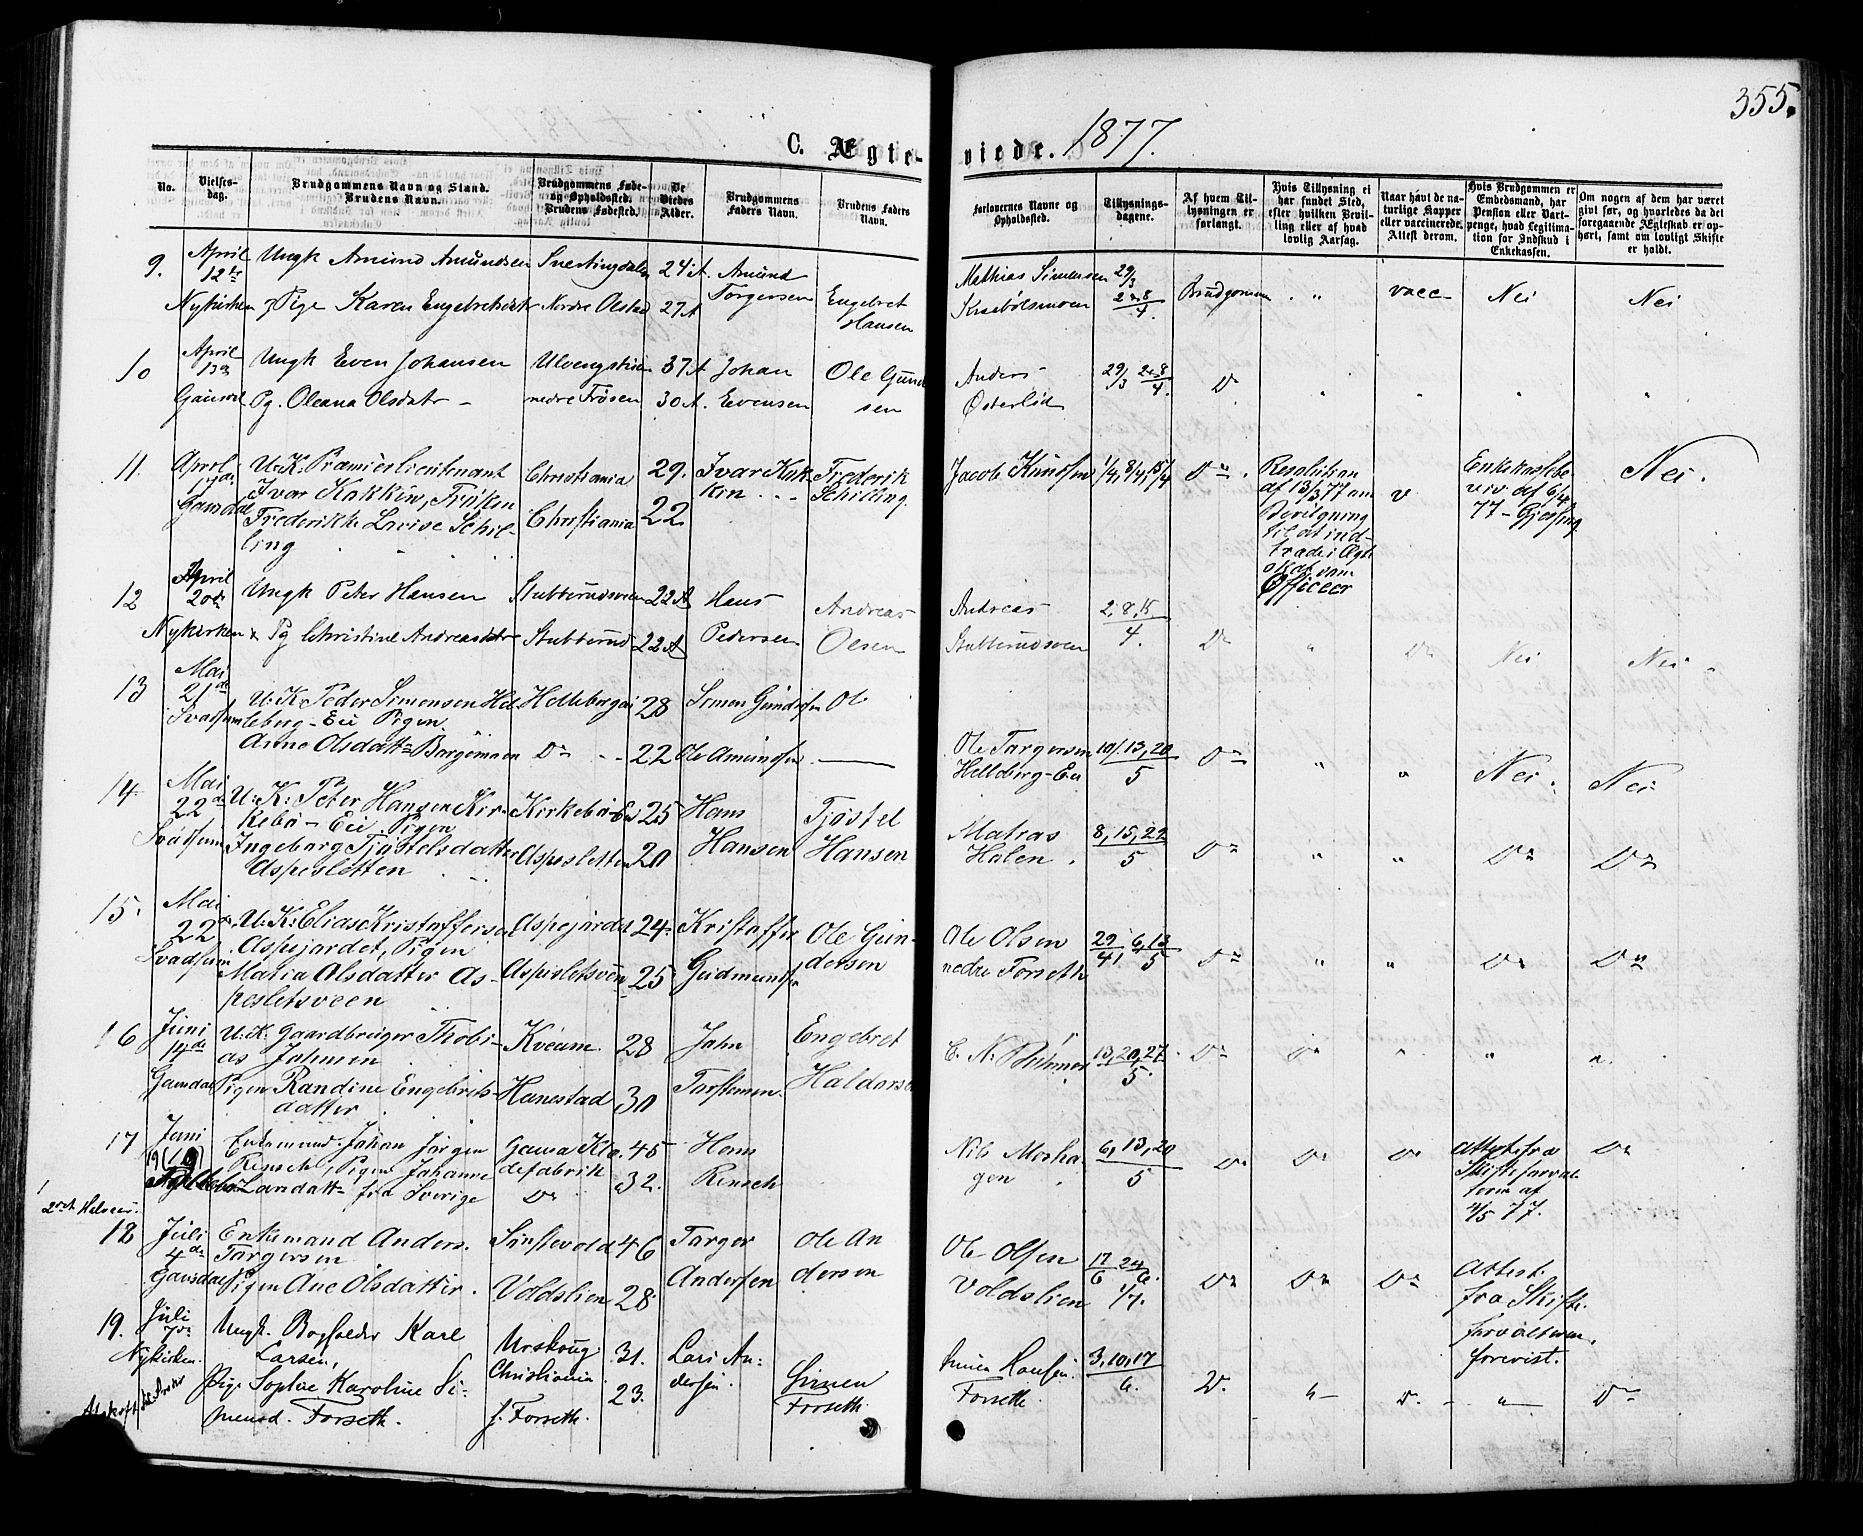 355.
C. Ægte-viede. 1877.
No.
Vielses-dag.
Brudgommens Navn og Stand. Brudens Navn.
Brudgommens Føde- og Opholdssted. Brudens Fødested.
De Viedes Alder.
Brudgommens Faders Navn.
Brudens Faders Navn.
Forlovernes Navne og Opholdssted.
Tillysnings-dagene.
Af hvem Tillysningen er forlangt.
Hvis Tillysning ei har fundet Sted, efter hvilken Bevilling eller af hvad lovlig Aarsag.
Naar havt de naturlige Kopper eller vaccinerede. Attest derom.
Hvis Brudgommen er Embedsmand, har Pension eller Vartpenge, hvad Legitimation for Indskud i Enkekassen.
Om nogen af dem har været givt før, og hvorledes da det foregaaende Ægteskab er ophørt, samt om lovligt Skifte er holdt.
9. April 12te Ungk Amund Amundsen Snertingdalen 24 A Amund Torgersen Mathias Simensen 29/3 2 & 8/4 Brudgommen " vacc Nei Nei
Nykirken Pige Karen Engebretsdatr Nordre Olstad 27 A Engebret Hansen
10 April 13de Ungk Even Johansen 37 A Johan Evensen Ole Gund sen Anders Østerlid 29/3 2&8/4 Do " " " "
Gausdal Pg. Oleana Olsdatr nedre Frøsen 30 A
11. April 17de U:K: Præmierlieutenant Christiania 29. Ivar Kakkin Frederik Schilling. Jacob Knudsen 1/4, 8/4, 15/4 Do Nei.
Gausdal Ivar Kakkin, Frøken Frederikke Lovise Schilling Christiania 22
Resolution af 13/3 77 om Bevilgning til at indtræde i Ægteskab som Officeer
Enkekassebevis af 6/4 77 - Gjessing
12 April 20de Ungk Peter Hansen Stubberudsveen 22 A Hans Pedersen Andreas Olsen Andreas Stubberudsveen 2, 8, 15/4. Do " Do Nei Nei
Nykirken Pg Christine Andreasdatr Stubberud 22 A
13 Mai 21de U:K: Peder Simonsen Helleberg-Eie Pigen Helleberget 28 Simen Gundersen Ole
Svadsum Anne Olsdattr Bergemoen Do 22 Ole Amundsen Ole Torgersen Helleberg-Eie 10, 13, 20/5 Do " " Nei. Nei
14. Mai 22de U:K: Peter Hansen Kirkebø-Eie Pigen Kirkebø-Eie 25 Hans Hansen Tjøstel Hansen Matias Holen 8, 15, 22/5 Do " " Do Do
Svadsum Ingeborg Tjøstelsdatter Aspesletten Aspesletten 20
15. Mai 22de U:K: Elias Kristoffersen Aspejordet, Pigen Aspejordet 24 Kristoffer Gudmundsen Ole Gundersen Ole Olsen nedre Forseth 29/4 6, 13/5 Do " " Do Do
Svadsum Matia Olsdatter Aspesletsveen Aspesletsveen 25
16 Juni 14de U.K. Gaardbruger Thobias Johnsen Kveum 28 John Torstensen Engebret Haldorsen 13, 20, 27/5. Do Do " " "
Gausdal Pigen Randine Engebretsdatter Hanestad 30
17 Juni 19 Enkemand Johan Jørgen Rensch, Pigen Johanne 45 Hans Rensch Nils Moshagen 6, 13, 20/5 Do Do Do Do
fra Sverige Do 32.
Attest fra Skifteforvalteren af 4/5 77.
18 Juli 4de Enkemand Anders Torgersen 46 Torger Andersen Ole Andersen Ole Olsen Voldslien 17/6 24/6. 1/7. Do Do Do
Gausdal Pigen Ane Olsdatter. Voldslien 28
Attest fra Skifteforvalteren, forevist.
19. Juli Ungk. Bogholder Karl Larsen, Urskoug Christiania 31. Lars Andersen. Simen Forseth Simen Hansen Forseth 3, 10, 17/6. Do " Do " Do
Nykirken. Pige Sophie Karoline Simensd. Forseth. f. Forseth. 23.